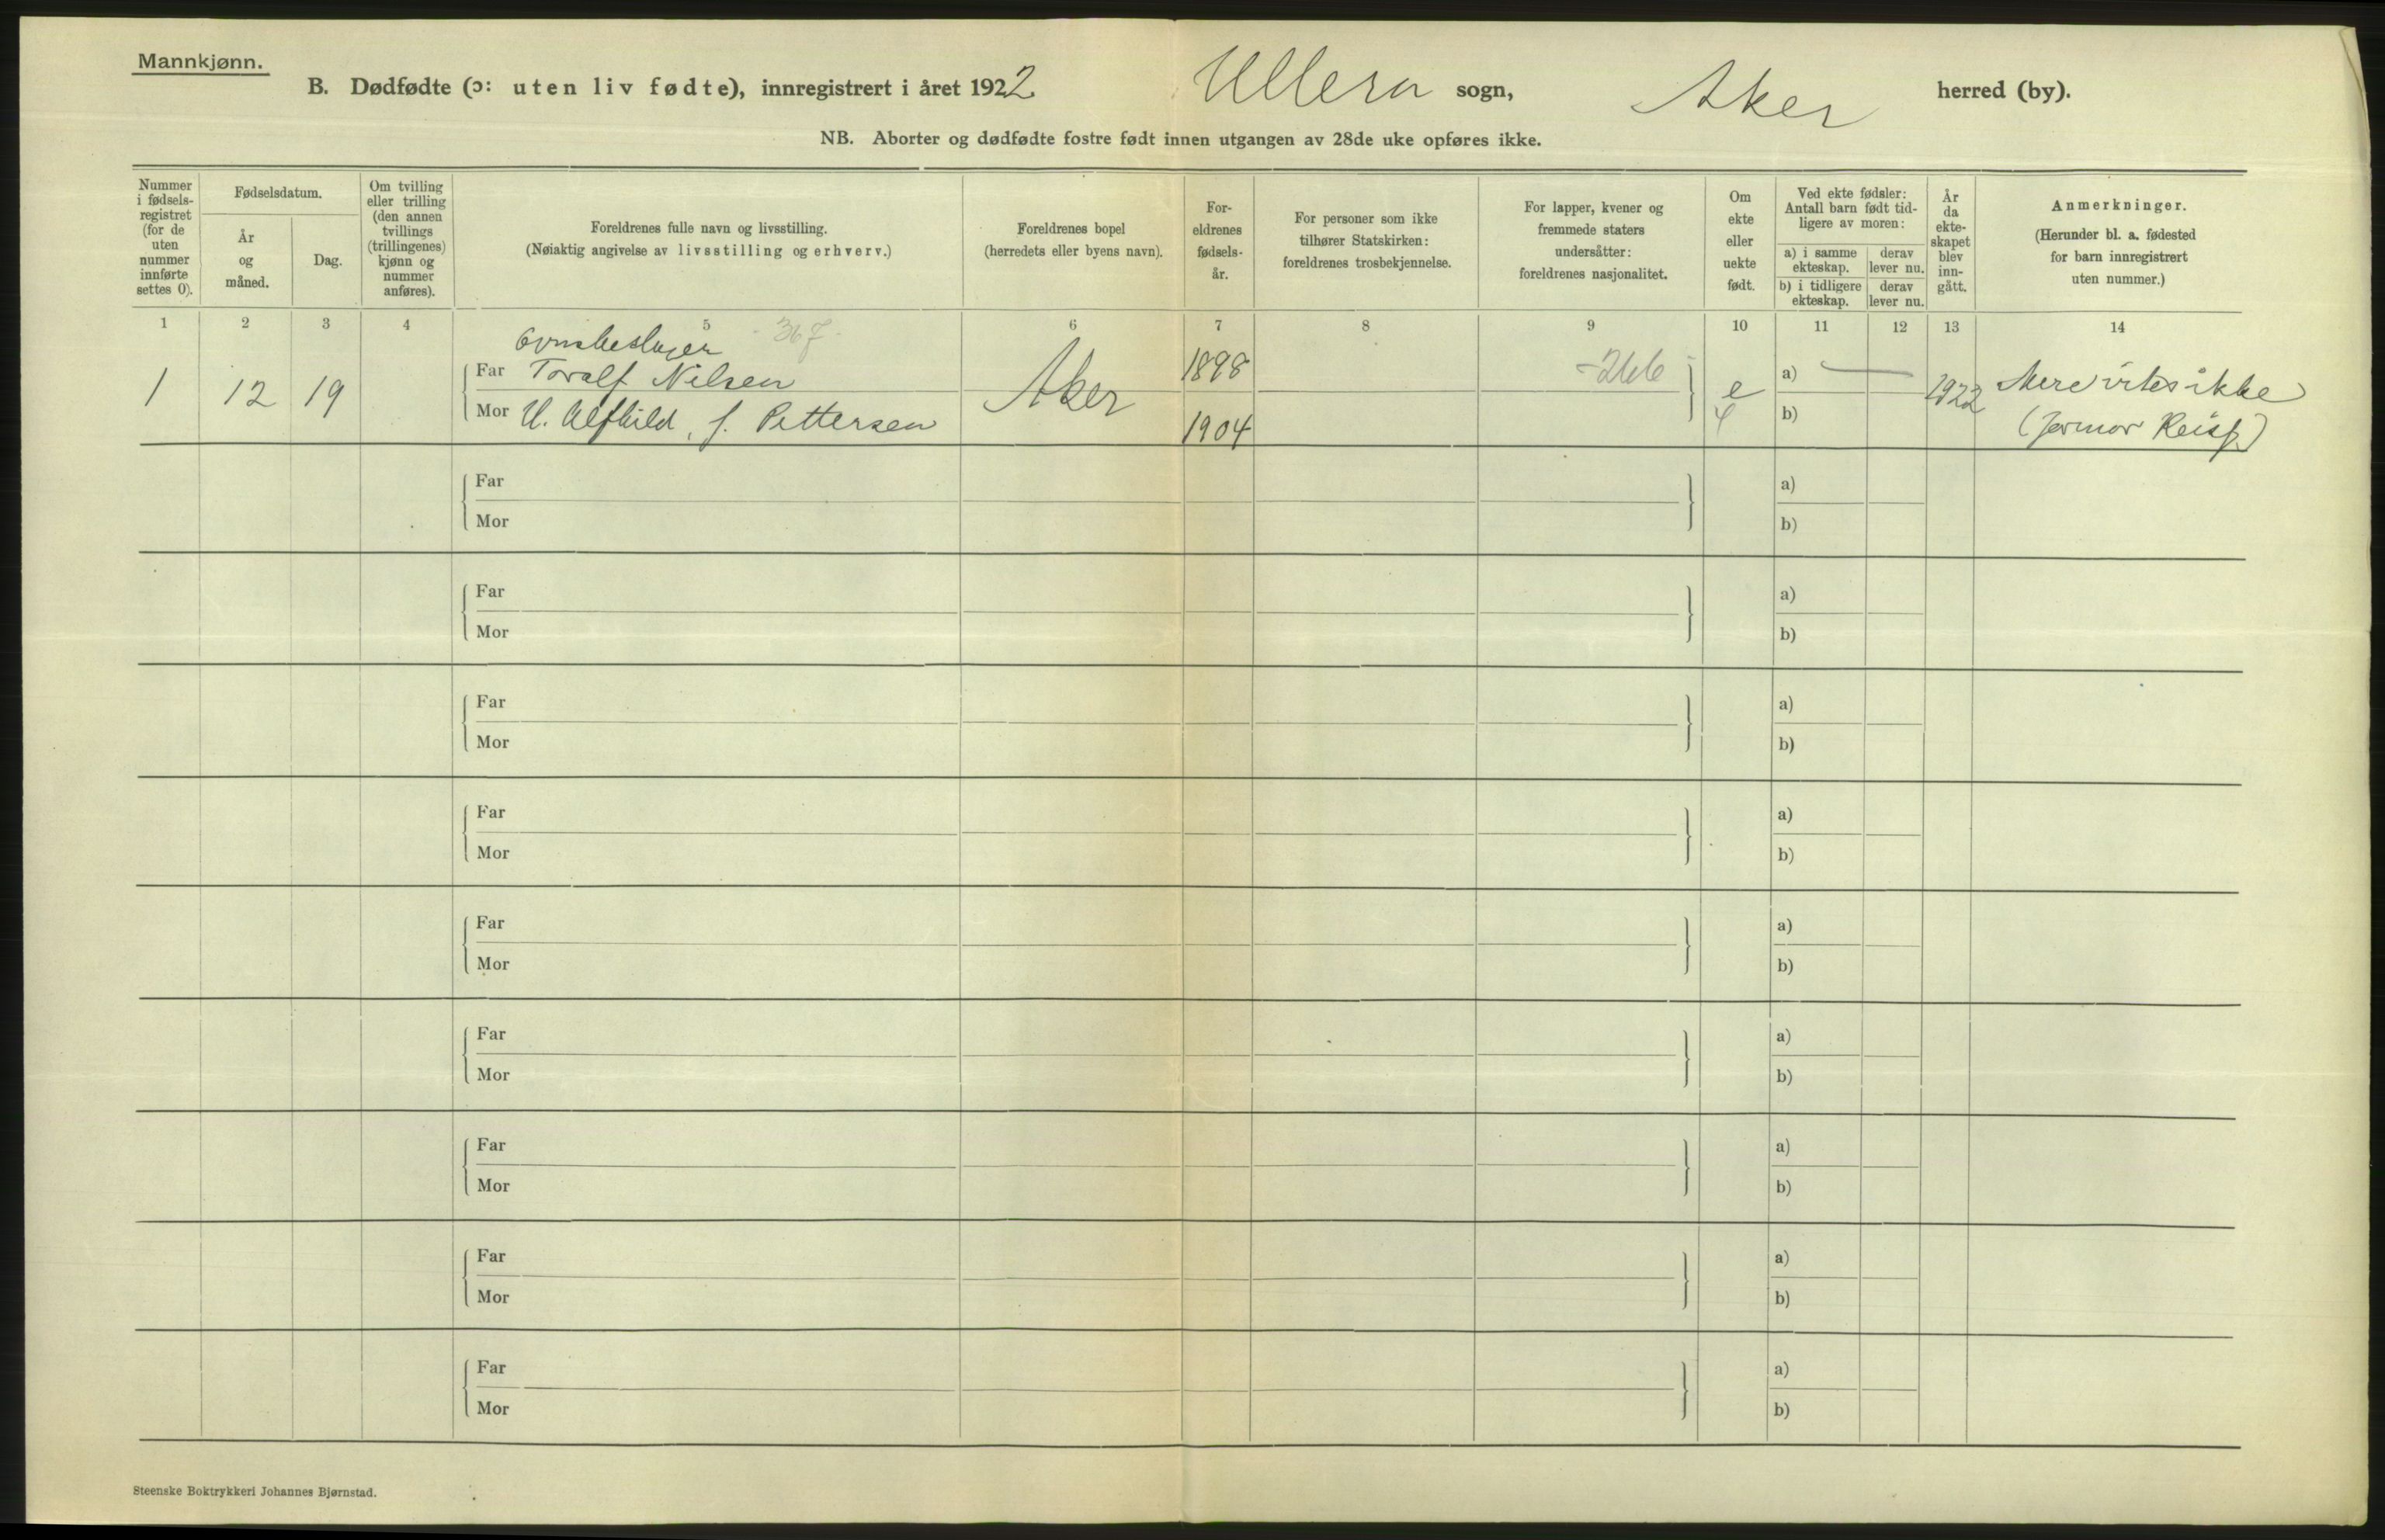 Mannkjønn.
B. Dødfødte (ɔ: uten liv fødte), innregistrert i året 1922 Ullern sogn, Aker herred (by).
NB. Aborter og dødfødte fostre født innen utgangen av 28de uke opføres ikke.
Nummer
i fødsels-
registret
(for de
uten
nummer
innførte
settes 0).
Fødselsdatum.
År
og
måned.
Dag.
Om tvilling
eller trilling
(den annen
tvillings
(trillingenes)
kjønn og
nummer
anføres).
Foreldrenes fulle navn og livsstilling.
(Nøiaktig angivelse av livsstilling og erhverv.)
Foreldrenes bopel
(herredets eller byens navn).
For-
eldrenes
fødsels-
år.
For personer som ikke
tilhører Statskirken:
foreldrenes trosbekjennelse.
For lapper, kvener og
fremmede staters
undersåtter:
foreldrenes nasjonalitet.
Om
ekte
eller
uekte
født.
Ved ekte fødsler:
Antall barn født tid-
ligere av moren:
a) i samme
ekteskap.
derav
lever nu.
b) i tidligere
ekteskap.
derav
lever nu.
År
da
ekte-
skapet
blev
inn-
gått.
Anmerkninger.
(Herunder bl. a. fødested
for barn innregistrert
uten nummer.)
1 2 3 4 5 6 7 8 9 10 11 12 13 14
367
1 12 19
Far Toralf Nilsen
Mor U. Alfhild, f. Pettersen
Aker
1898
1904
-266
e
4
a) —
b)
1922
Mere vites ikke
(Jormor Reisp)
Far
Mor
a)
b)
Far
Mor
a)
b)
Far
Mor
a)
b)
Far
Mor
a)
b)
Far
Mor
a)
b)
Far
Mor
a)
b)
Far
Mor
a)
b)
Far
Mor
a)
b)
Far
Mor
a)
b)
Steenske Boktrykkeri Johannes Bjørnstad.